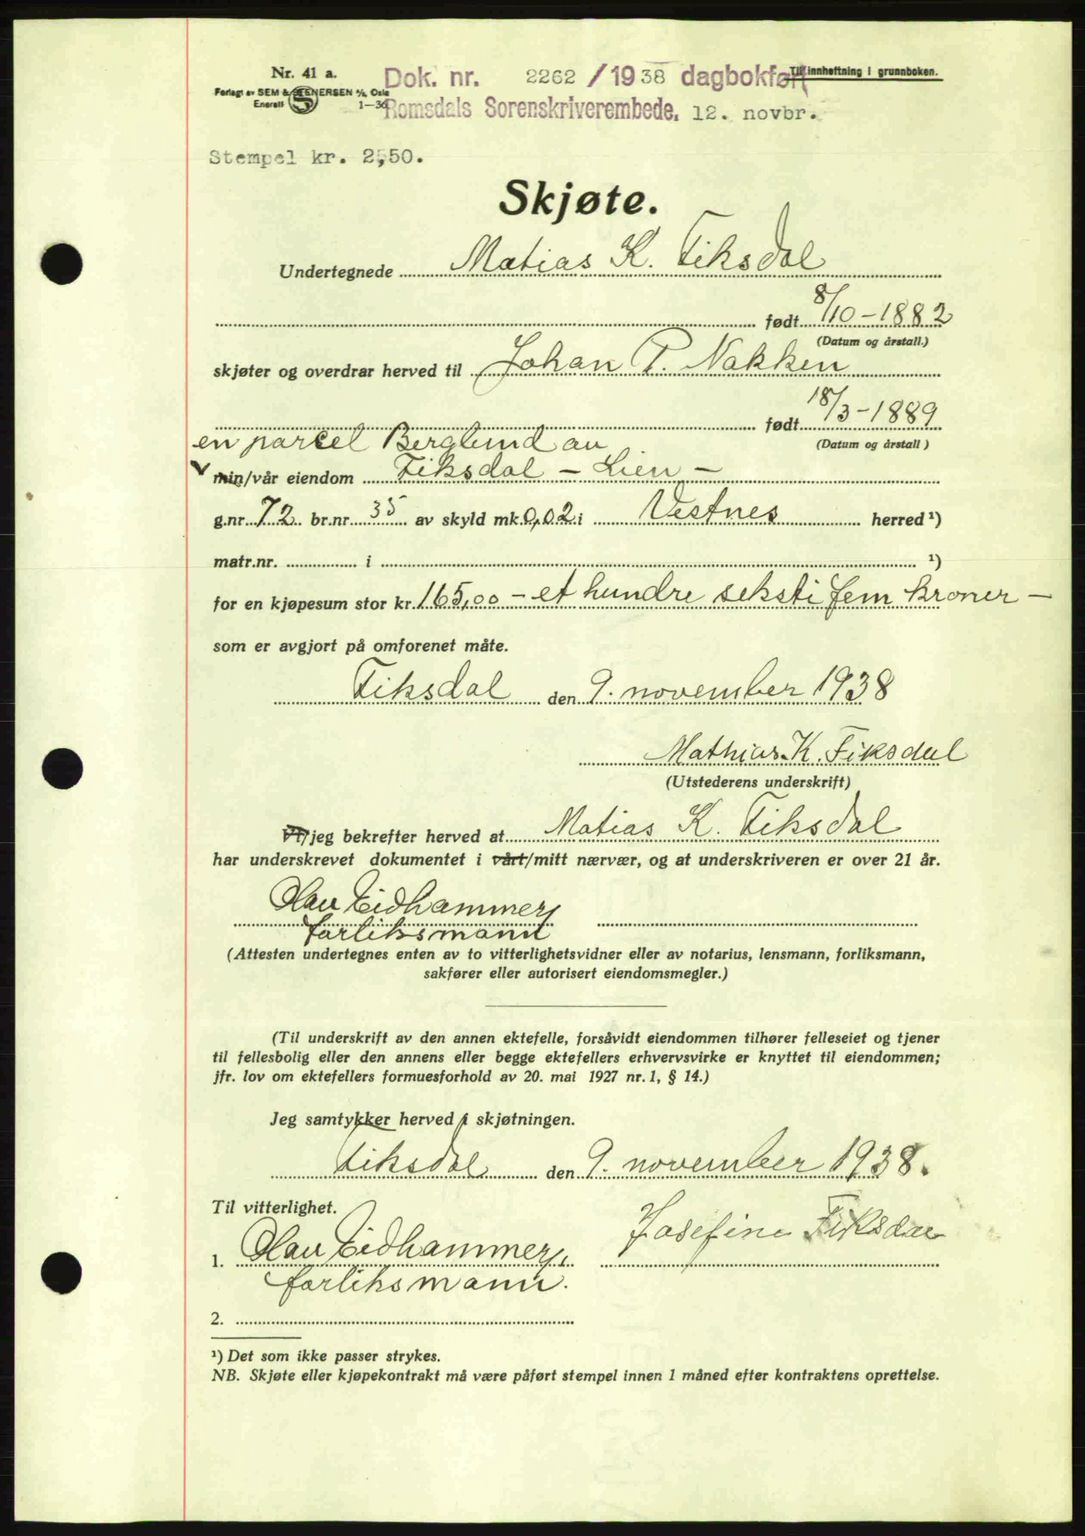 Nr. 41 a.
Forlagt av SEM & STENERSEN A/S, Oslo
Enerett 1—36
Dok. nr. 2262 /1938 dagbokført
Til innheftning i grunnboken.
Romsdals Sorenskriverembede, 12. novbr.
Stempel kr. 2,50.
Skjøte.
Undertegnede Matias K. Fiksdal
født 8/10-1882
(Datum og årstall.)
skjøter og overdrar herved til Johan P. Nakken
født 18/3-1889
(Datum og årstall)
en parcel Berglund av
min/vår eiendom Fiksdal - Lien -
g.nr. 72 br.nr. 35 av skyld mk. 0,02 i Vestnes herred ¹)
matr.nr. i ¹)
for en kjøpesum stor kr. 165,00 - et hundre seksti fem kroner -
som er avgjort på omforenet måte.
Fiksdal den 9. november 1938
Mathias K. Fiksdal
(Utstederens underskrift)
Vi/jeg bekrefter herved at Matias K. Fiksdal
har underskrevet dokumentet i vårt/mitt nærvær, og at underskriveren er over 21 år.
Olav Eidhammer,
forliksmann
(Attesten undertegnes enten av to vitterlighetsvidner eller av notarius, lensmann, forliksmann,
sakfører eller autorisert eiendomsmegler.)
(Til underskrift av den annen ektefelle, forsåvidt eiendommen tilhører felleseiet og tjener
til fellesbolig eller den annens eller begge ektefellers erhvervsvirke er knyttet til eiendommen;
jfr. lov om ektefellers formuesforhold av 20. mai 1927 nr. 1, § 14.)
Jeg samtykker herved i skjøtningen.
Fiksdal den 9. november 1938.
Til vitterlighet.
Josefine Fiksdal
1. Olav Eidhammer,
forliksmann.
2.
¹) Det som ikke passer strykes.
NB. Skjøte eller kjøpekontrakt må være påført stempel innen 1 måned efter kontraktens oprettelse.